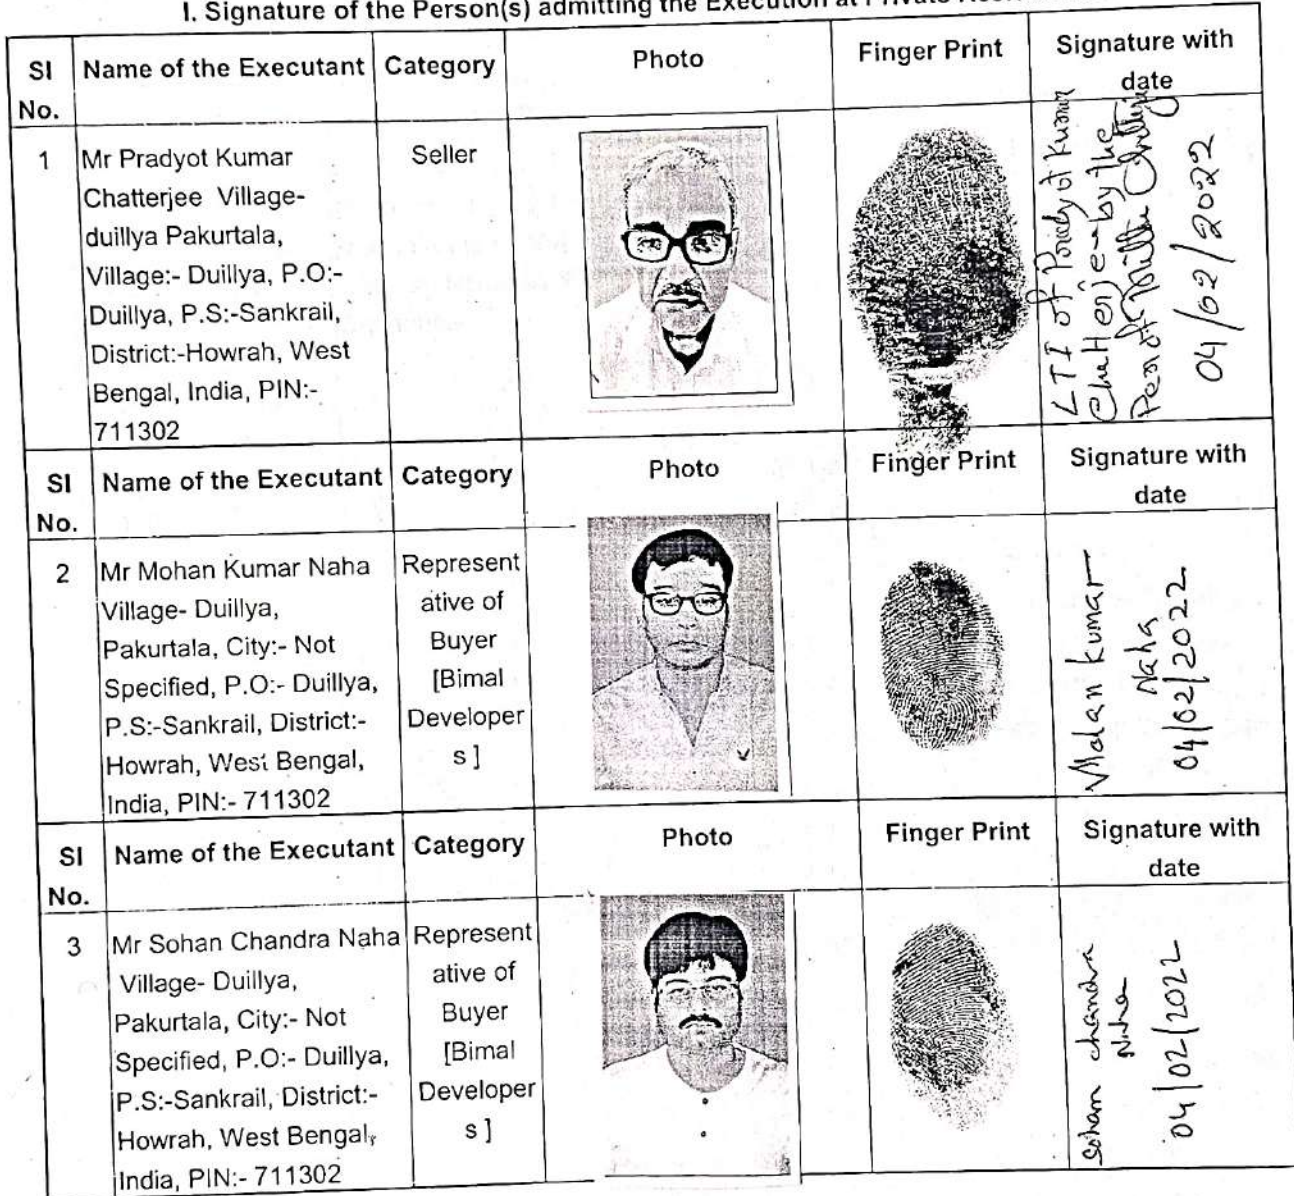 I. Signature of the Person(s) admitting the Execution at Private
SI No.
Name of the Executant
Category
Photo
Finger Print
Signature with date
1
Mr Pradyot Kumar
Chatterjee Village-
duillya Pakurtala,
Village:- Duillya, P.O:-
Duillya, P.S:-Sankrail,
District:-Howrah, West
Bengal, India, PIN:-
711302
Seller
LTI of Pradyot Kumar
Chatterjee - by the
Pen of
04/02/2022
SI No.
Name of the Executant
Category
Photo
Finger Print
Signature with date
2
Mr Mohan Kumar Naha
Village- Duillya,
Pakurtala, City:- Not
Specified, P.O:- Duillya,
P.S:-Sankrail, District:-
Howrah, West Bengal,
India, PIN:- 711302
Represent
ative of
Buyer
[Bimal
Developer
s ]
Kumar
Naha
04/02/2022
SI No.
Name of the Executant
Category
Photo
Finger Print
Signature with date
3
Mr Sohan Chandra Naha
Village- Duillya,
Pakurtala, City:- Not
Specified, P.O:- Duillya,
P.S:-Sankrail, District:-
Howrah, West Bengal,
India, PIN:- 711302
Represent
ative of
Buyer
[Bimal
Developer
s ]
Sohan chandra
Naha
04/02/2022